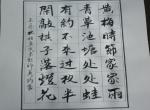 黄梅時節家家雨
青草池塘处处蛙
有約不来过夜半
閑敲棋子落燈花